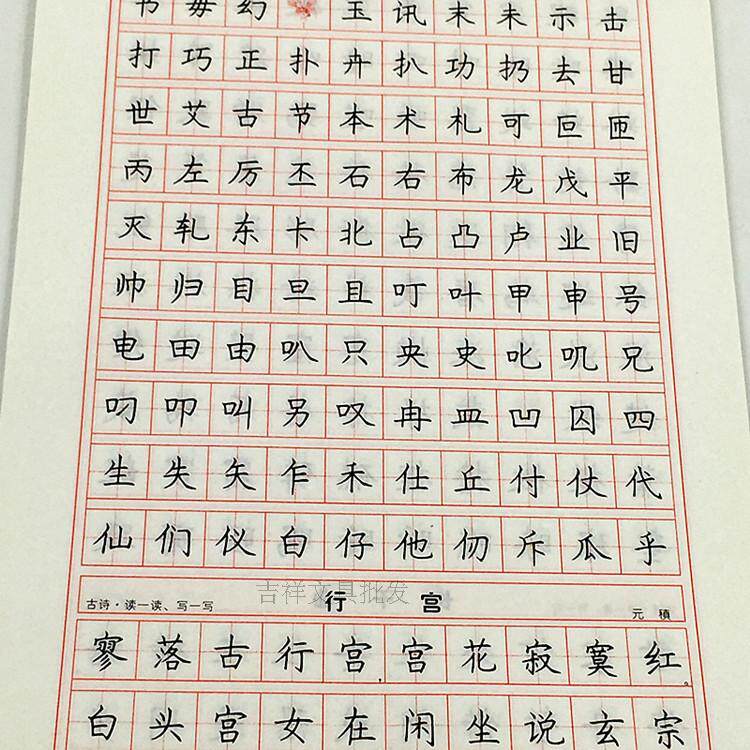 书 毋 幻 玉 讯 末 未 示 击
打 巧 正 扑 卉 扒 功 扔 去 甘
世 艾 古 节 本 术 札 可 叵 匝
丙 左 厉 丕 石 右 布 龙 戊 平
灭 轧 东 卡 北 占 凸 卢 业 旧
帅 归 目 旦 且 叮 叶 甲 申 号
电 田 由 叭 只 央 史 叱 叽 兄
叼 叩 叫 另 叹 冉 皿 凹 囚 四
生 失 矢 乍 禾 仕 丘 付 仗 代
仙 们 仪 白 仔 他 仞 斥 瓜 乎
古诗·读一读、写一写 行 宫 元 稹
吉祥文具批发
寥 落 古 行 宫 , 宫 花 寂 寞 红 。
白 头 宫 女 在 闲 坐 说 玄 宗